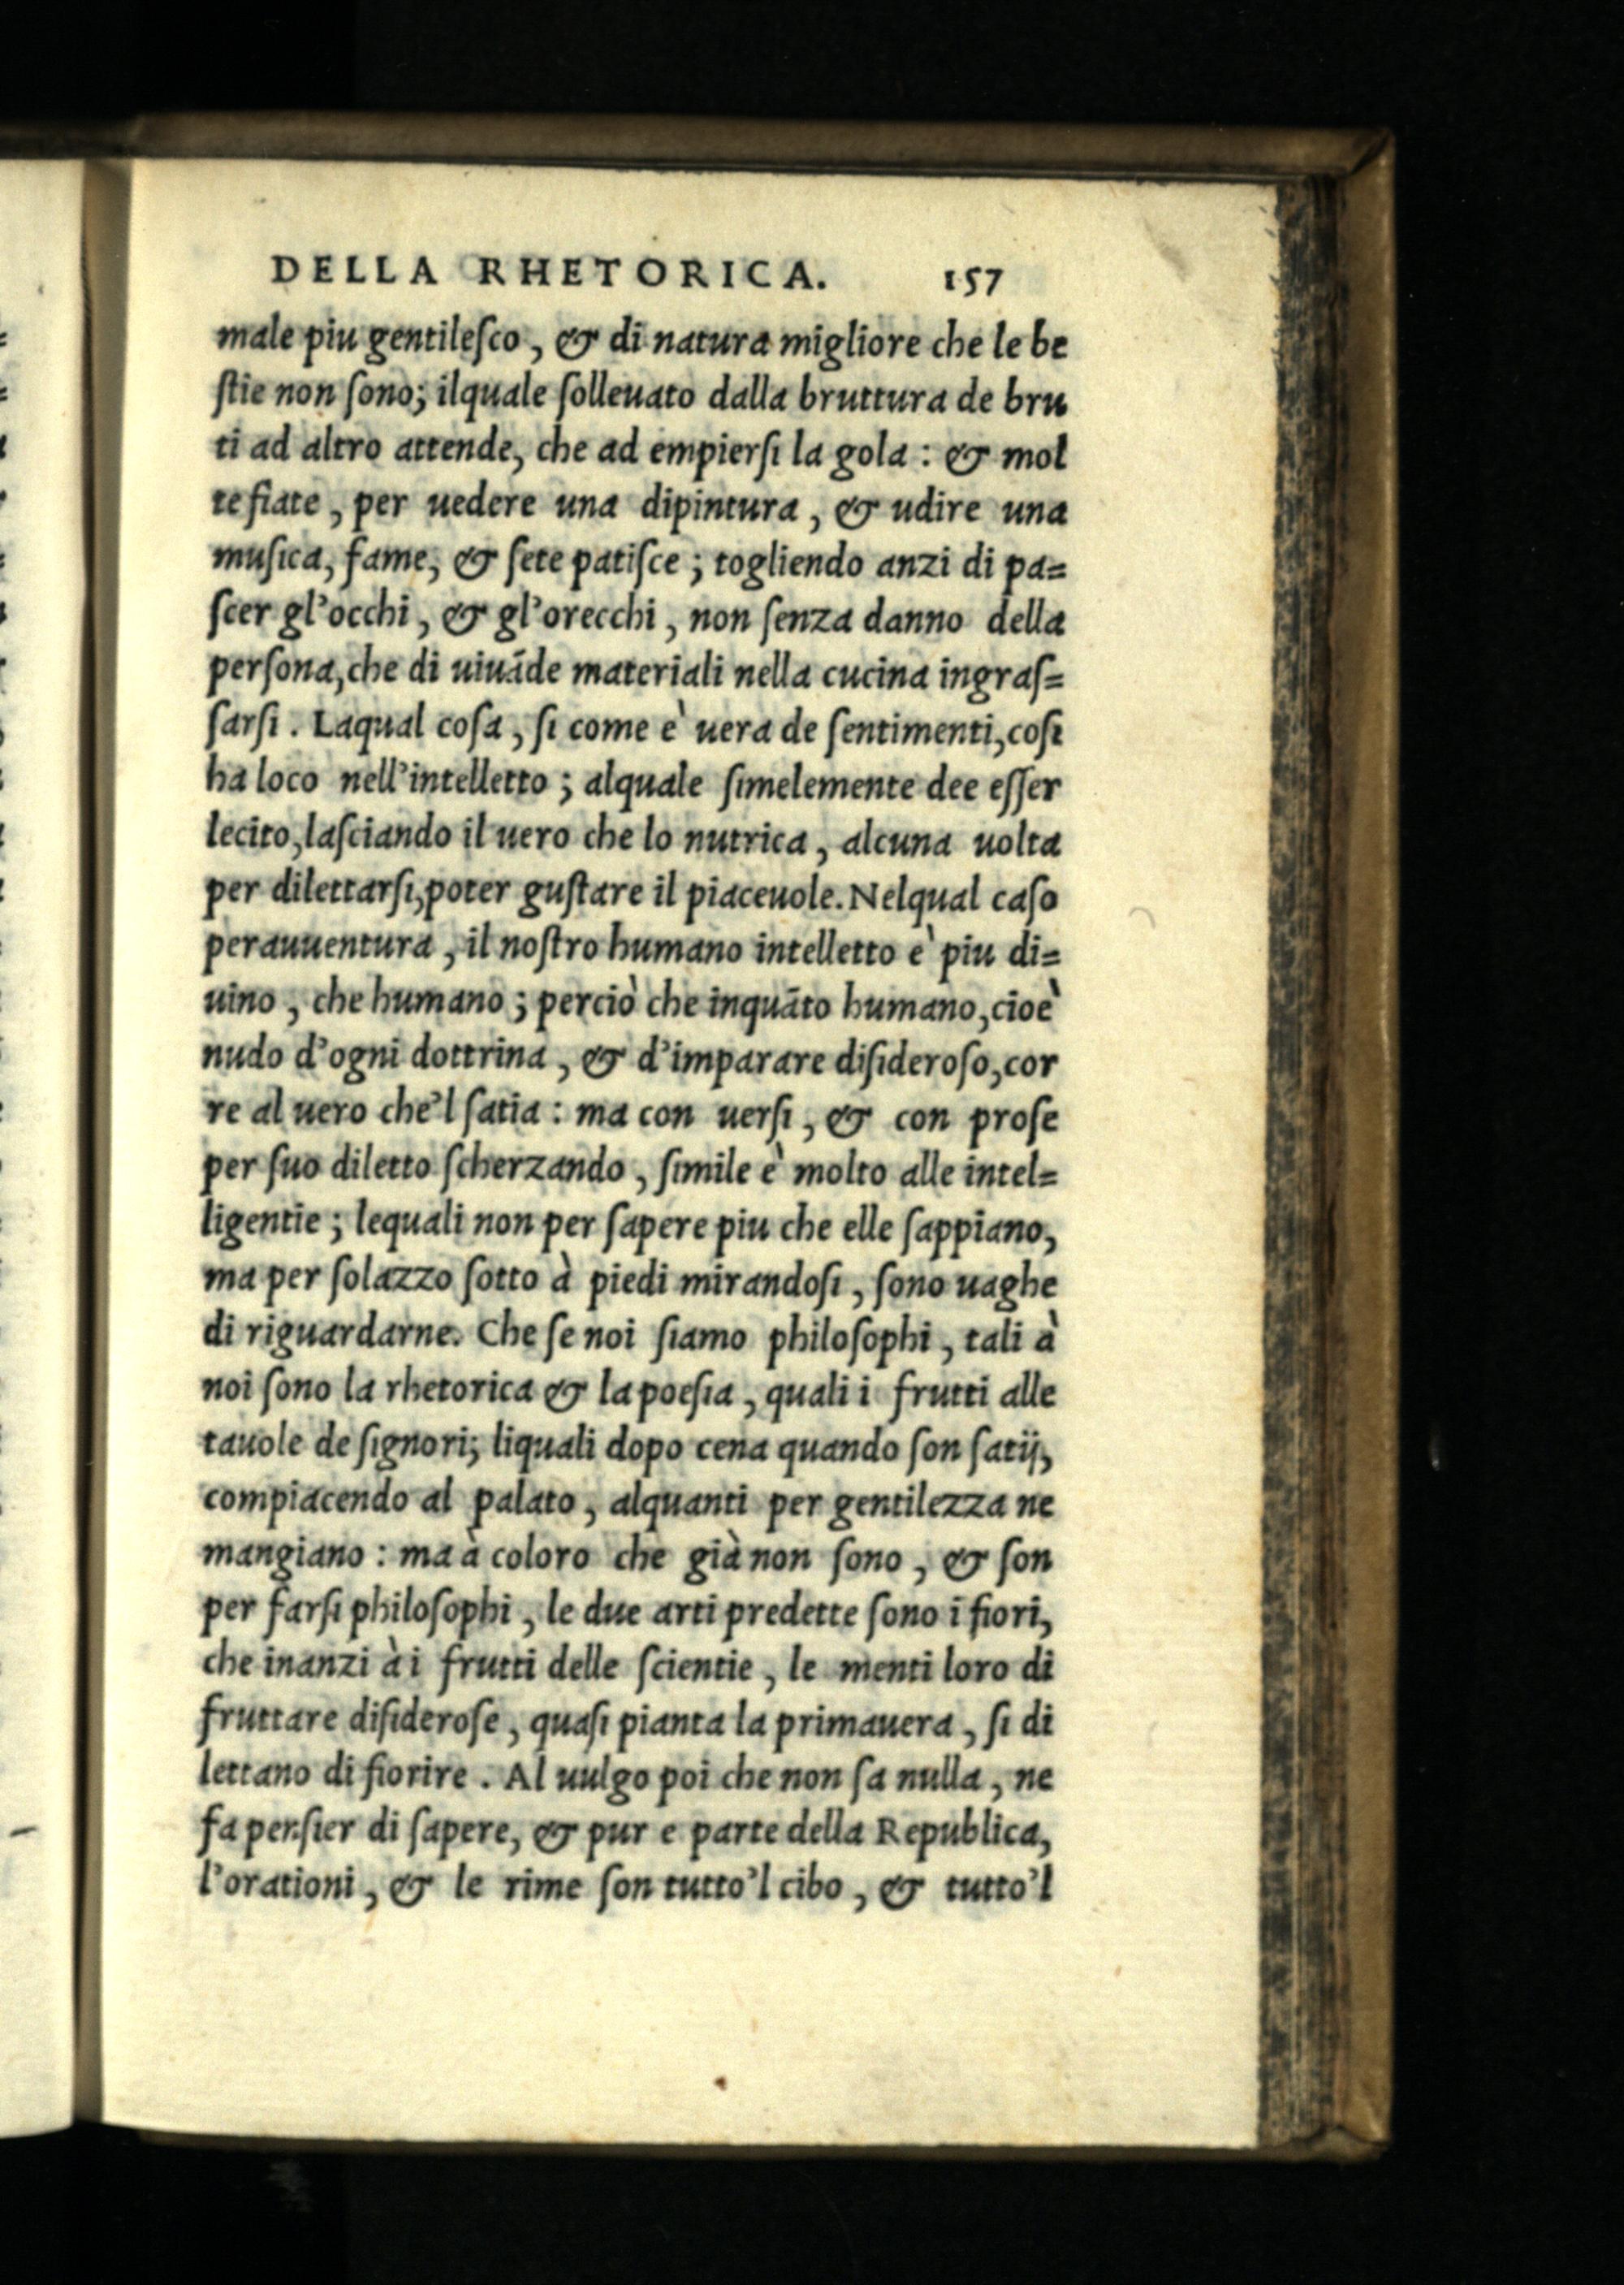 DELLA RHETORICA. 157
male piu gentileſco, & di natura migliore che le be
ſtie non ſono; ilquale ſolleuato dalla bruttura de bru
ti ad altro attende, che ad empierſi la gola: & mol
te fiate, per uedere una dipintura, & udire una
muſica, fame, & ſete patiſce; togliendo anzi di pa=
ſcer gl'occhi, & gl'orecchi, non ſenza danno della
perſona, che di uiuāde materiali nella cucina ingraſ=
ſarſi. Laqual coſa, ſi come è uera de ſentimenti, coſi
ha loco nell'intelletto; alquale ſimelemente dee eſſer
lecito, laſciando il uero che lo nutrica, alcuna uolta
per dilettarſi, poter guſtare il piaceuole. Nelqual caſo
perauuentura, il noſtro humano intelletto è piu di=
uino, che humano; perciò che inquāto humano, cioè
nudo d'ogni dottrina, & d'imparare diſideroſo, cor
re al uero che'l ſatia: ma con uerſi, & con proſe
per ſuo diletto ſcherzando, ſimile è molto alle intel=
ligentie; lequali non per ſapere piu che elle ſappiano,
ma per ſolazzo ſotto à piedi mirandoſi, ſono uaghe
di riguardarne. Che ſe noi ſiamo philoſophi, tali à
noi ſono la rhetorica & la poeſia, quali i frutti alle
tauole de ſignori; liquali dopo cena quando ſon ſatij,
compiacendo al palato, alquanti per gentilezza ne
mangiano: ma à coloro che già non ſono, & ſon
per farſi philoſophi, le due arti predette ſono i fiori,
che inanzi à i frutti delle ſcientie, le menti loro di
fruttare diſideroſe, quaſi pianta la primauera, ſi di
lettano di fiorire. Al uulgo poi che non ſa nulla, ne
fa penſier di ſapere, & pur e parte della Republica,
l'orationi, & le rime ſon tutto'l cibo, & tutto'l